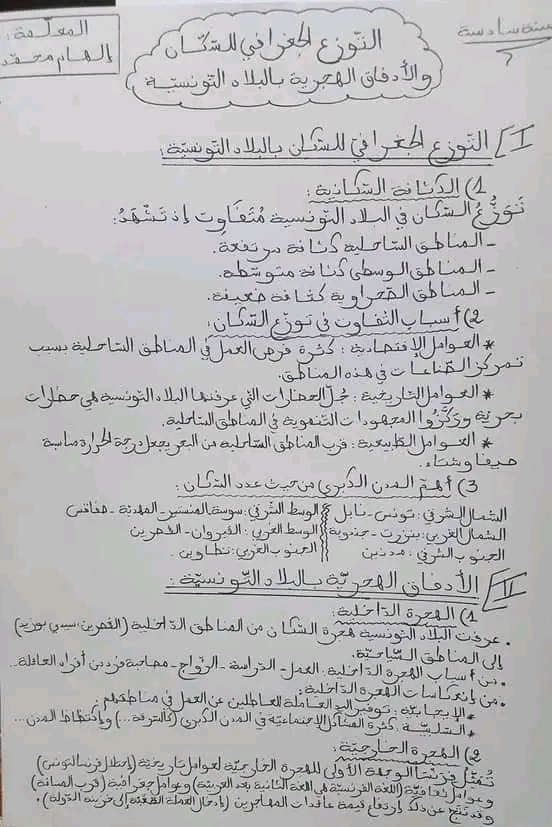 سنة سادسة
المعلّمة:
إلهام محمّد
التّوزّع الجغرافي للسّكّان
والأدفاق الهجرية بالبلاد التّونسيّة
I التّوزع الجغرافي للسّكان بالبلاد التّونسيّة:
1) الكثافة السّكّانية:
تَوَزُّعُ السّكّان في البلاد التّونسية مُتَفَاوت إذ تَشْهَدُ:
- المناطق السّاحلية كثافة مرتفعة.
- المناطق الوسطى كثافة متوسّطة.
- المناطق الصّحراوية كثافة ضعيفة.
2) أسباب التّفاوت في توزّع السّكّان:
* العوامل الإقتصادية: كثرة فرص العمل في المناطق السّاحلية بسبب
تمركز الصّناعات في هذه المناطق.
* العوامل التّاريخية: جُلّ الحضارات التي عرفتها البلاد التّونسية هي حضارات
بحريّة وركّزُوا المجهودات التّنمويّة في المناطق السّاحلية.
* العوامل الطّبيعية: قرب المناطق السّاحلية من البحر يجعل درجة الحرارة مناسبة
صيفا وشتاء.
3) أهمّ المدن الكبرى من حيث عدد السّكان:
الشمال الشرقي: تونس - نابل
الوسط الشّرقي: سوسة المنستير - المهديّة - صفاقس
الشمال الغربي: بنزرت - جندوبة
الوسط الغربي: القيروان - القصرين
الجنوب الشّرقي: مدنين
الجنوب الغربي: تطاوين.
II الأدفاق الهجريّة بالبلاد التّونسيّة:
1) الهجرة الدّاخلية:
• عرفت البلاد التونسية هجرة السّكان من المناطق الدّاخلية (القصرين، سيدي بوزيد)
إلى المناطق السّياحيّة.
• من أسباب الهجرة الدّاخلية: العمل - الدّراسة - الزّواج - مصاحبة فرد من أفراد العائلة..
• من إنعكاسات الهجرة الدّاخلية:
* الإيجابيّة: توفير اليد العاملة للعاطلين عن العمل في مناطقهم.
* السّلبيّة: كثرة المشاكل الإجتماعيّة في المدن الكبرى (كالسّرقة...) وإكتظاظ المدن...
2) الهجرة الخارجيّة:
تُمَثِّل فرنسا الوجهة الأولى للهجرة الخارجيّة لعوامل تاريخيّة (إحتلال فرنسا لتونس)
وعوامل ثقافيّة (اللغة الفرنسيّة هي اللغة الثانية بعد العربيّة) وعوامل جغرافية (قرب المسافة)
وقد نَتَجَ عن ذلك إرتفاع قيمة عائدات المهاجرين (إدخال العملة الصّعبة إلى خزينة الدّولة).